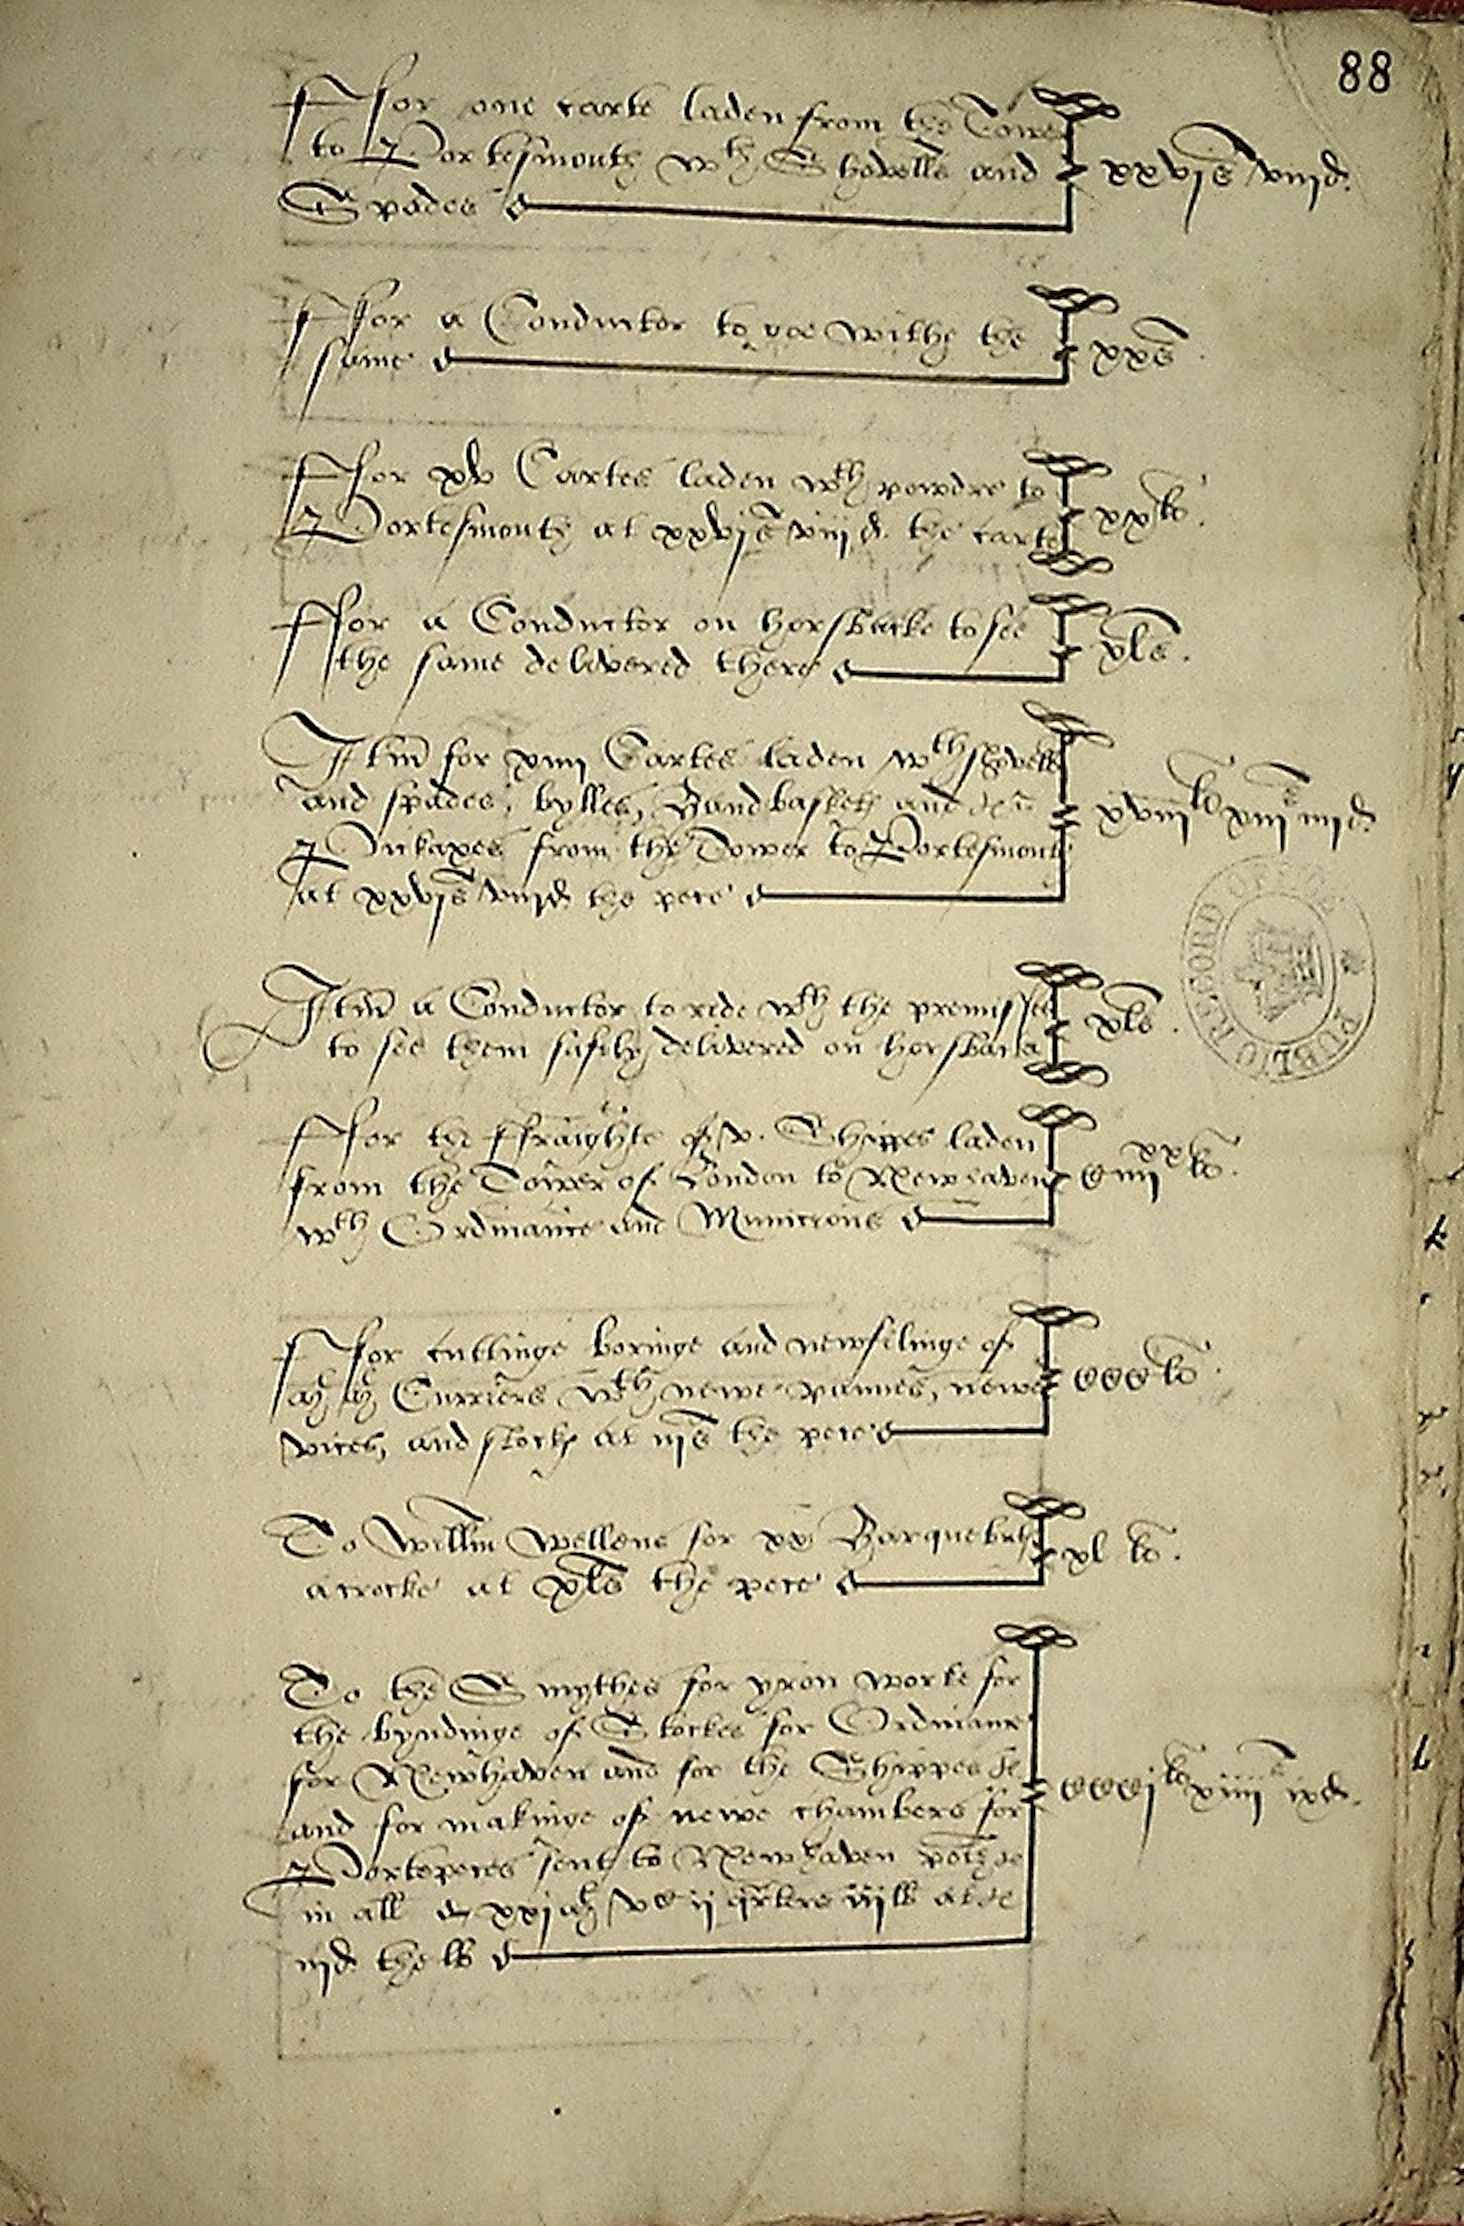 88
Ffor one carte laden from the Tower
to Portesmouth wth Shovells and
Spades
xxvjs viijd.
Ffor a Conductor to goe withe the
same
xxs.
Ffor xv Cartes laden wth powdre to
Portesmouth at xxvjs viijd. the carte
xxli.
Ffor a Conductor on horsbacke to see
the same delivered there
xls.
Itm for xiiij Cartes laden wth shovells
and spades, bylles, Handbaskets and
Pickaxes from the Tower to Portesmouth
at xxvjs viijd the pece
xviijli xiijs iiijd.
Itm a Conductor to ride wth the premisses
to see them safely delivered on horsback
xls.
Ffor the ffraighte of v. Shippes laden
from the Tower of London to Newhaven
wth Ordinance and Municions
Ciiijxxli.
Ffor cuttinge boringe and newfilinge of
mł mł Curriers wth newe pannes, newe
vices, and stocks at iijs the pece
CCCli.
To Willm Wellens for xx Harquebuts
acrocke at xls the pece
xl li.
To the Smythes for yron worke for
the byndinge of Stockes for Ordinance
for Newhaven and for the Shippes
and for makinge of newe chambers for
Portepeces sent to Newhaven poiz
in all xxjmł vC ij qrters iijlb at
iijd. the lb
CCCjli xiiijs ixd.
PUBLIC RECORD OFFICE